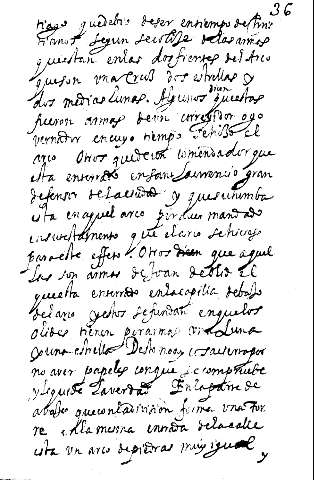 36
tiago que debio de ser en tiempo de
tianos segun se colije de las armas
questan en las dos frentes del Arco
que son una Cruz dos estrellas y
dos medias lunas. Algunos dicen questas
fueron armas de un corregidor o go
vernador en cuyo tiempo se hizo el
arco Otros que de un comendador que
esta enterrado en San Laurencio gran
defensor de la ciudad y que su tumba
esta en aquel arco por aver mandado
en su testamento que el arco se hiciese
para este effeto. Otros dicen que aquel
las son armas de Juan de olid el
questa enterrado en la capilla debajo
del arco y estos se fundan en que los
olides tienen por armas una Luna
y una estrella Desto no ay cosa cierta por
no aver papeles con que se compruebe
y segun de la verdad En la parte de
abajo que con la division forma una tor
re en la mesma entrada de la calle
esta un arco de piedras muy igual
y